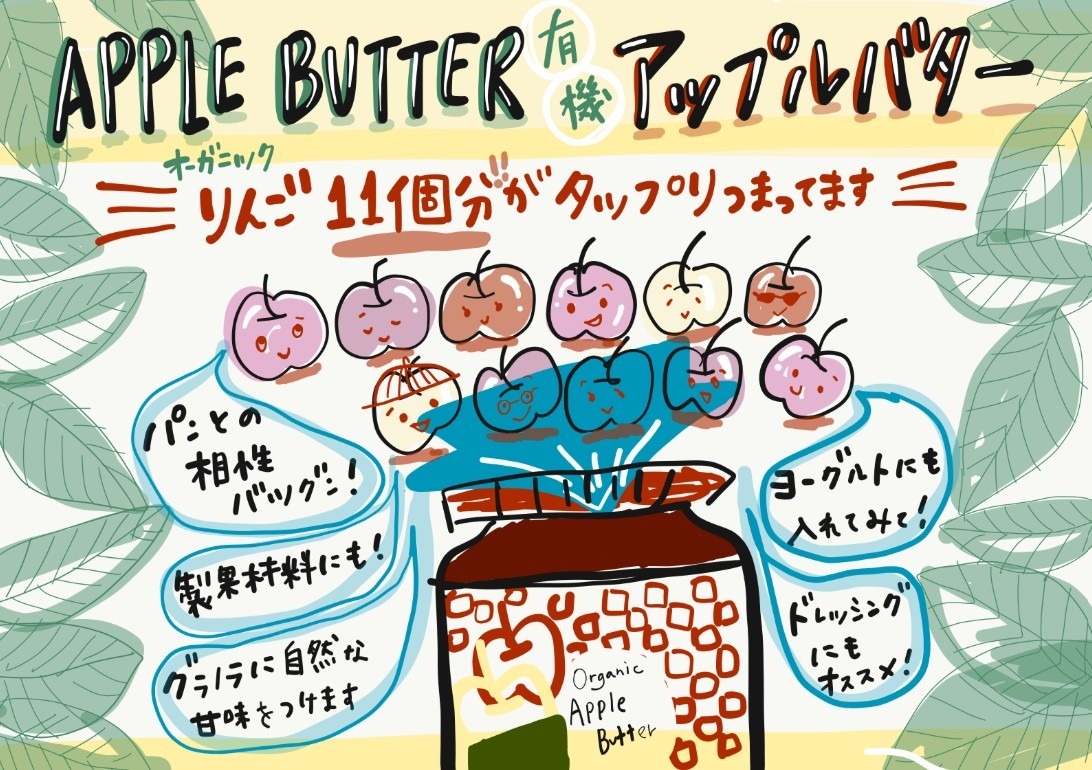 APPLE BUTTER 有機 アップルバター
オーガニック
りんご11個分!!がタップリつまってます
パンとの
相性
バツグン!
製果材料にも!
グラノラに自然な
甘味をつけます
ヨーグルトにも
入れてみて!
ドレッシング
にも
オススメ!
Organic
Apple
Butter